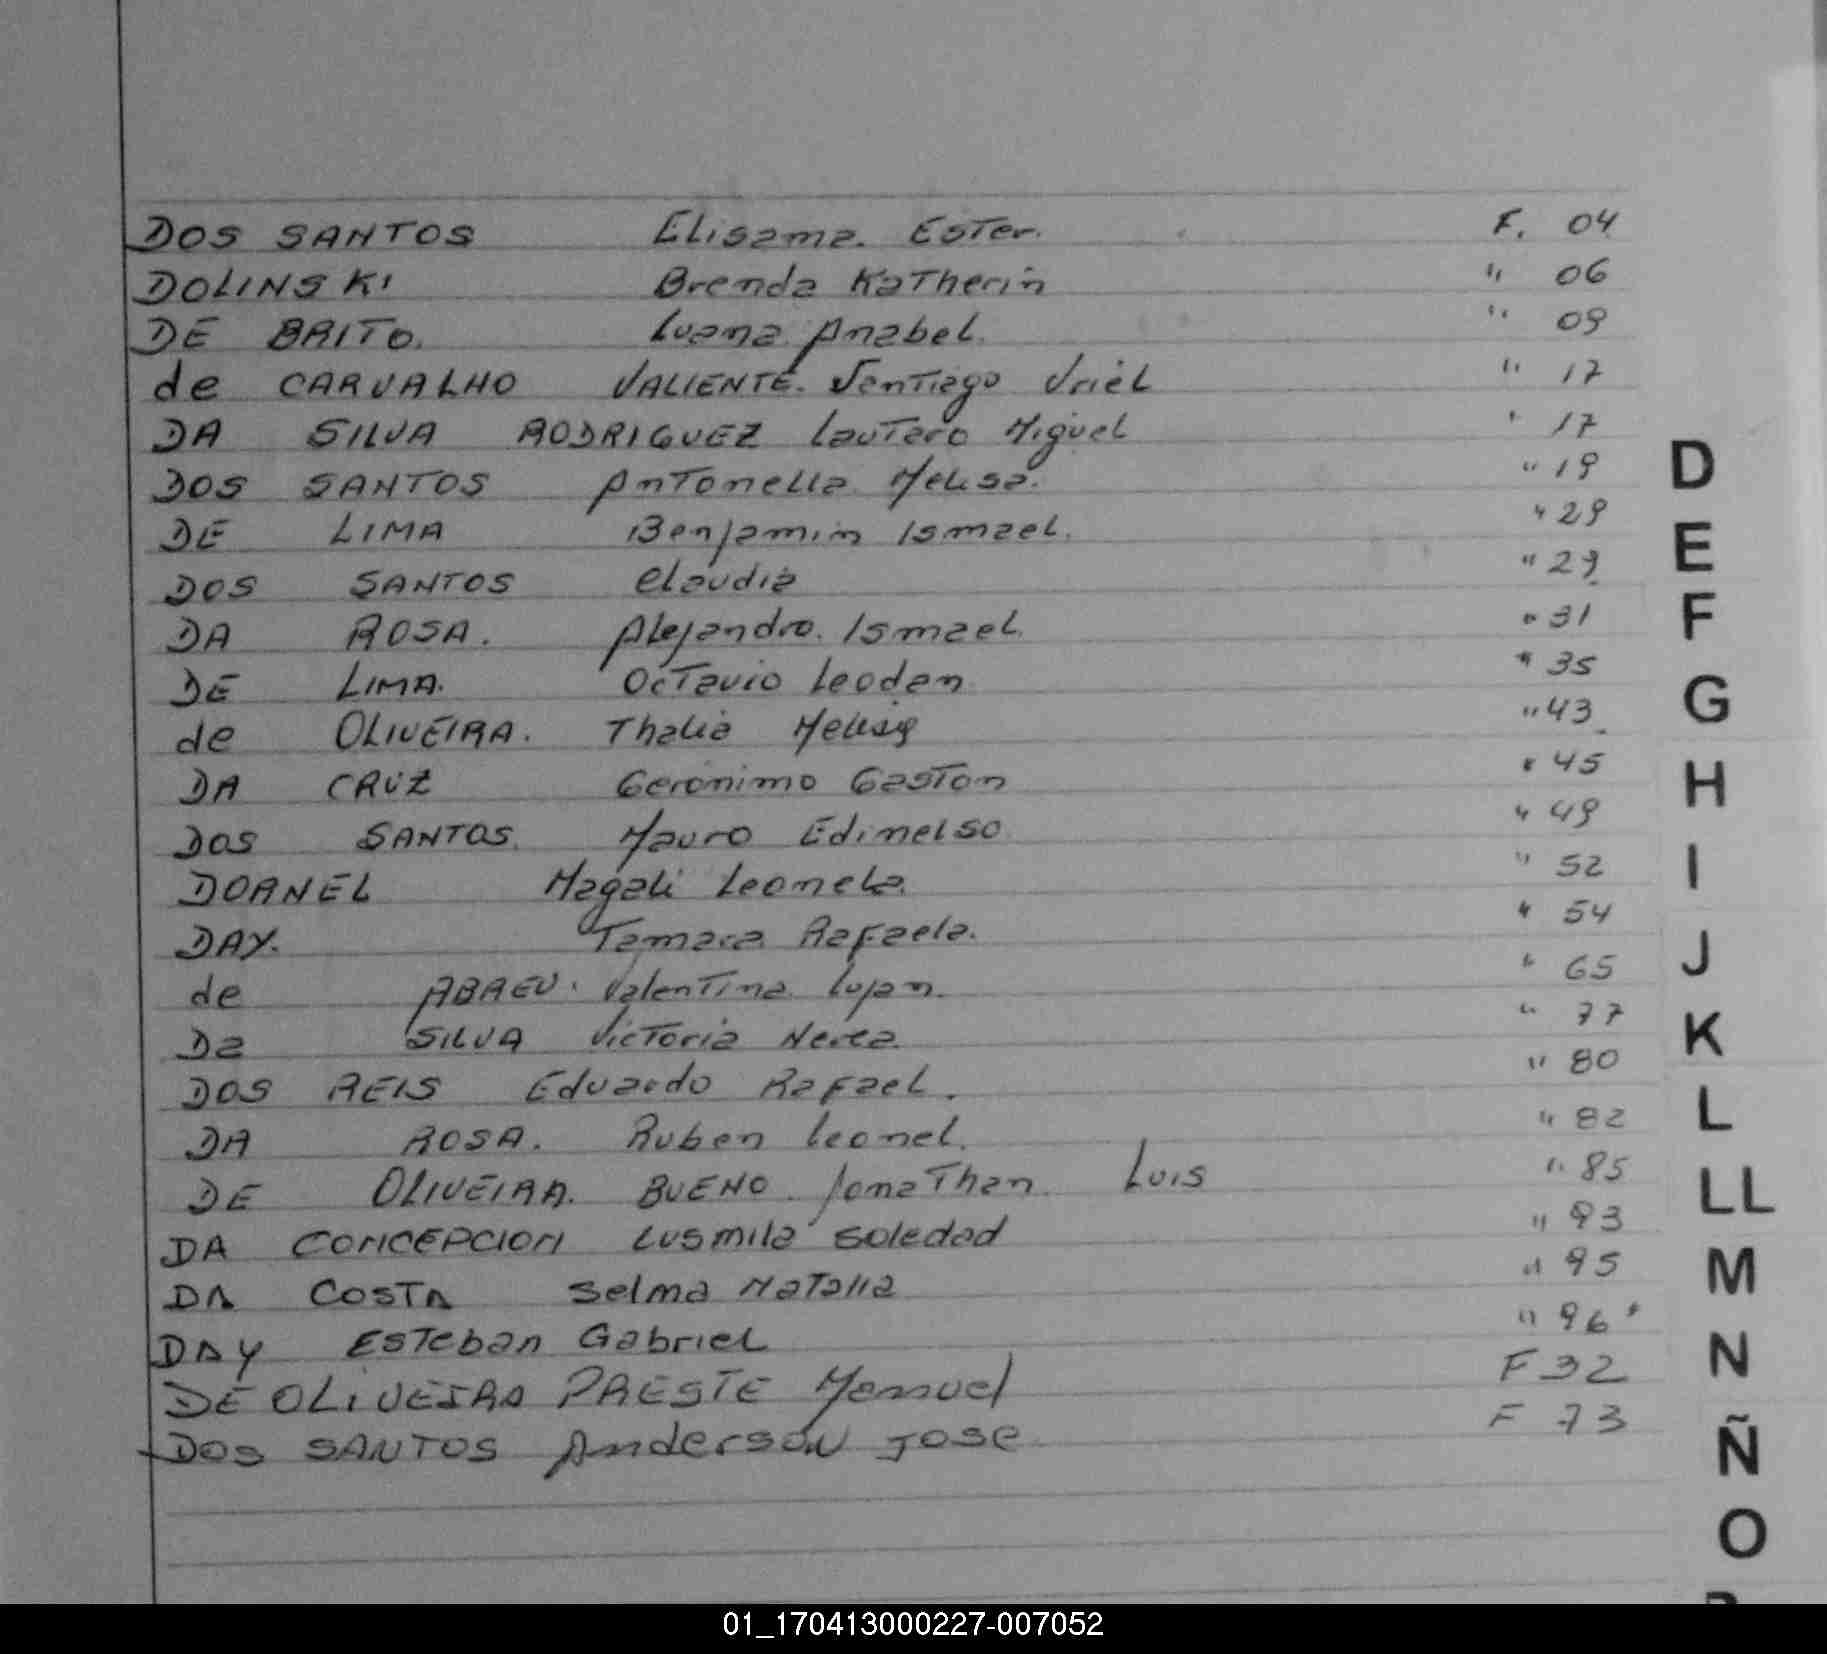 DOS SANTOS Elisama. Ester. F. 04
DOLINSKI Brenda Katherin " 06
DE BRITO. Luana Anabel. " 09
de CARVALHO VALIENTE. Santiago Uriel " 17
DA SILVA RODRIGUEZ Lautaro Miguel " 17
DOS SANTOS Antonella Melisa. " 19
DE LIMA Benjamin Ismael. " 29
DOS SANTOS Claudia " 29
DA ROSA. Alejandro. Ismael. " 31
DE LIMA. Octavio Leodan " 35
de OLIVEIRA. Thalia " 43
DA CRUZ Geronimo Gaston " 45
DOS SANTOS. Mauro Edimelso " 49
DORNEL Magali Leonela. " 52
DAY. Tamara Rafaela. " 54
de ABREU. Valentina Lujan. " 65
Da SILVA Victoria Nerea. " 77
DOS REIS Eduardo Rafael. " 80
DA ROSA. Ruben Leonel. " 82
DE OLIVEIRA. BUENO. Jonathan Luis " 85
DA CONCEPCION Lusmila Soledad " 93
DA COSTA Selma Natalia " 95
DAY Esteban Gabriel " 96
DE OLIVEIRA PRESTE Manuel F 32
DOS SANTOS Anderson Jose F 73
D
E
F
G
H
I
J
K
L
LL
M
N
Ñ
O
01_170413000227-007052